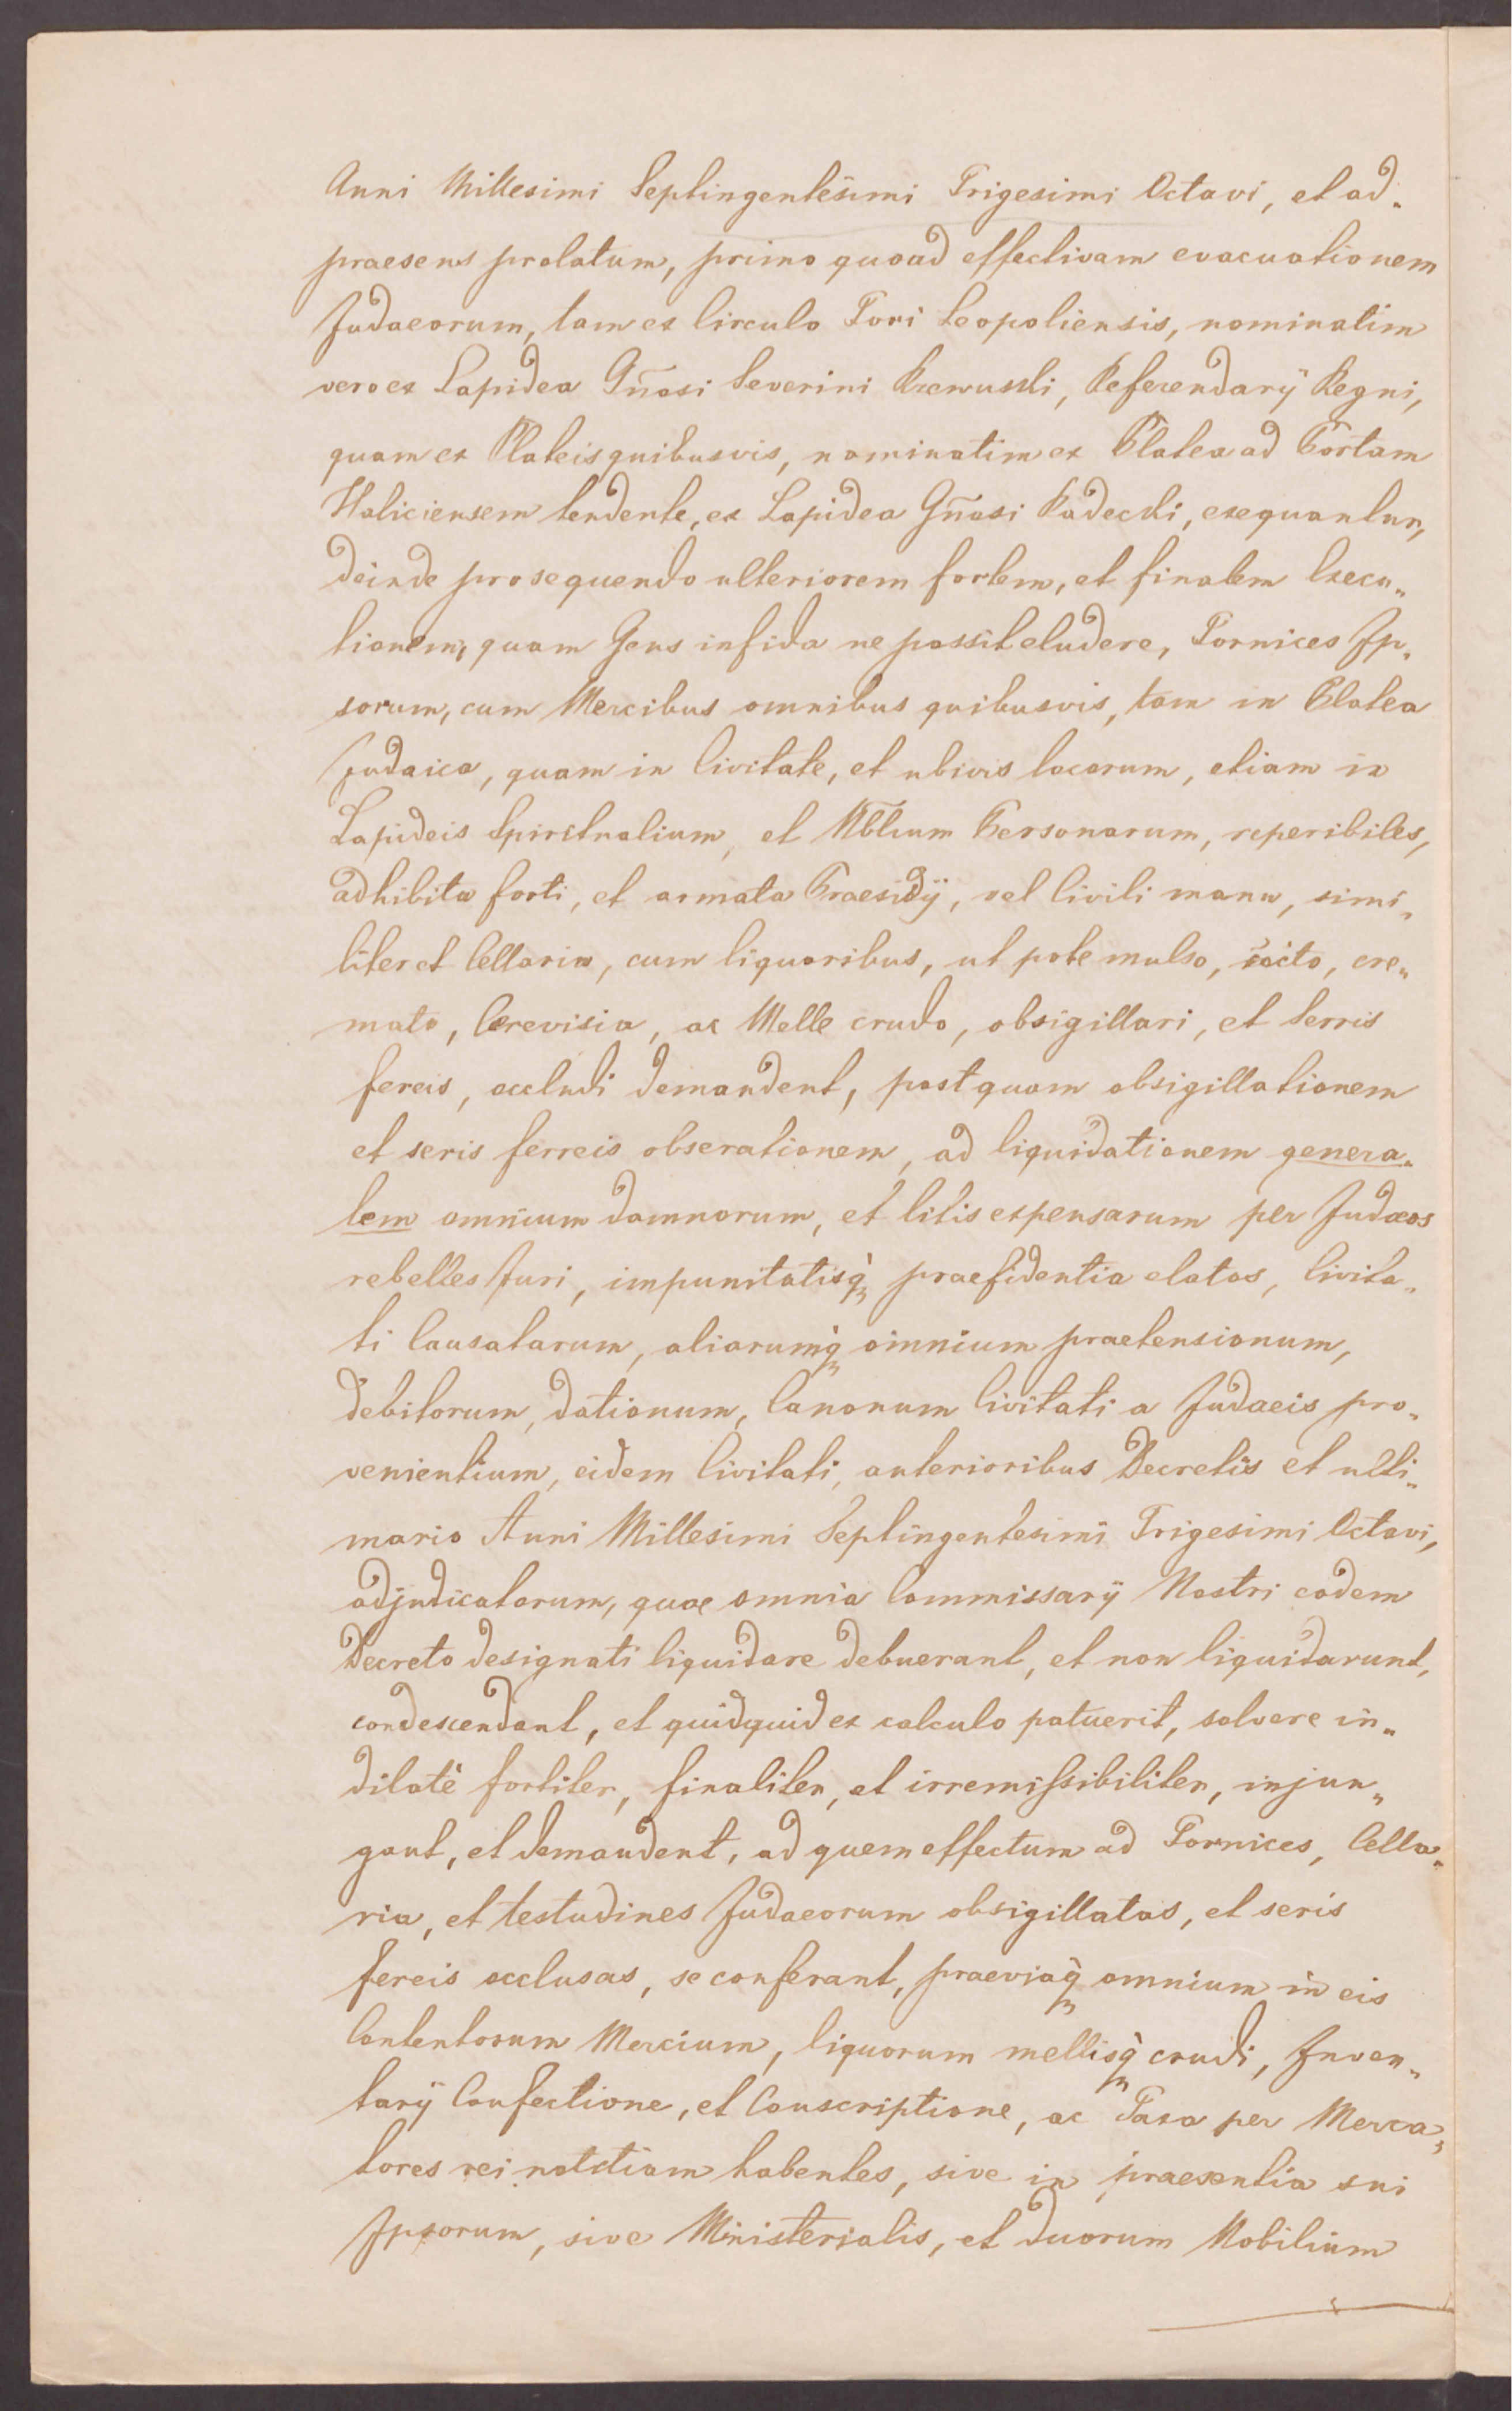 Anni Millesimi Septingentesimi Trigesimi Octavi, et ad„
praesens prolatum, primo quoad effectivam evacuationem
Judaeorum, tam ex Circulo Fori Leopoliensis, nominatim
vero ex Lapidea Gñosi Severini Rzewuski, Referendarÿ Regni,
quam ex Plateis quibusvis, nominatim ex Platea ad Portam
Haliciensem tendente, ex Lapidea Gñosi Radecki, exequantur,
deinde prosequendo ulteriorem fortem, et finalem Execu„
tionem, quam Gens infida ne possit eludere, Fornices Ip„
sorum, cum Mercibus omnibus quibusvis, tam in Platea
Judaica, quam in Civitate, et ubivis locorum, etiam in
Lapideis Spiritualium, et Nblium Personarum, reperibiles,
adhibita forti, et armata Praesidÿ, vel Civili manu, simi„
liter et Cellaria, cum liquoribus, ut pote mulso, cocto, cre„
mato, Cerevisia, ac Melle crudo, obsigillari, et Serris
fereis, occludi demandent, post quam obsigillationem
et seris ferreis obserationem, ad liquidationem genera„
lem omnium damnorum, et litis expensarum per Judaeos
rebelles Juri, impunitatisq̀ praefidentia elatos, Civita„
ti Causatarum, aliarumq̀ omnium praetensionum,
debitorum, dationum, Canonum Civitati a Judaeis pro„
venientium, eidem Civitati, anterioribus Decretis et ulti„
mario Anni Millesimi Septingentesimi Trigesimi Octavi,
adjudicatorum, quae omnia Commissarÿ Nostri eodem
Decreto designati liquidare debuerant, et non liquidarunt,
condescendant, et quidquid ex calculo patuerit, solvere in„
dilatè fortiter, finaliter, et irremissibiliter, injun„
gant, et demandent, ad quem effectum ad Fornices, Cella„
ria, et testudines Judaeorum obsigillatas, et seris
fereis occlusas, se conferant, praeviaq̀ omnium in eis
Contentorum Mercium, liquorum mellisq̀ crudi, Inven„
tarÿ Confectione, et Conscriptione, ac Taxa per Merca„
tores rei notitiam habentes, sive in praesentia sui
Ipsorum, sive Ministerialis, et duorum Nobilium